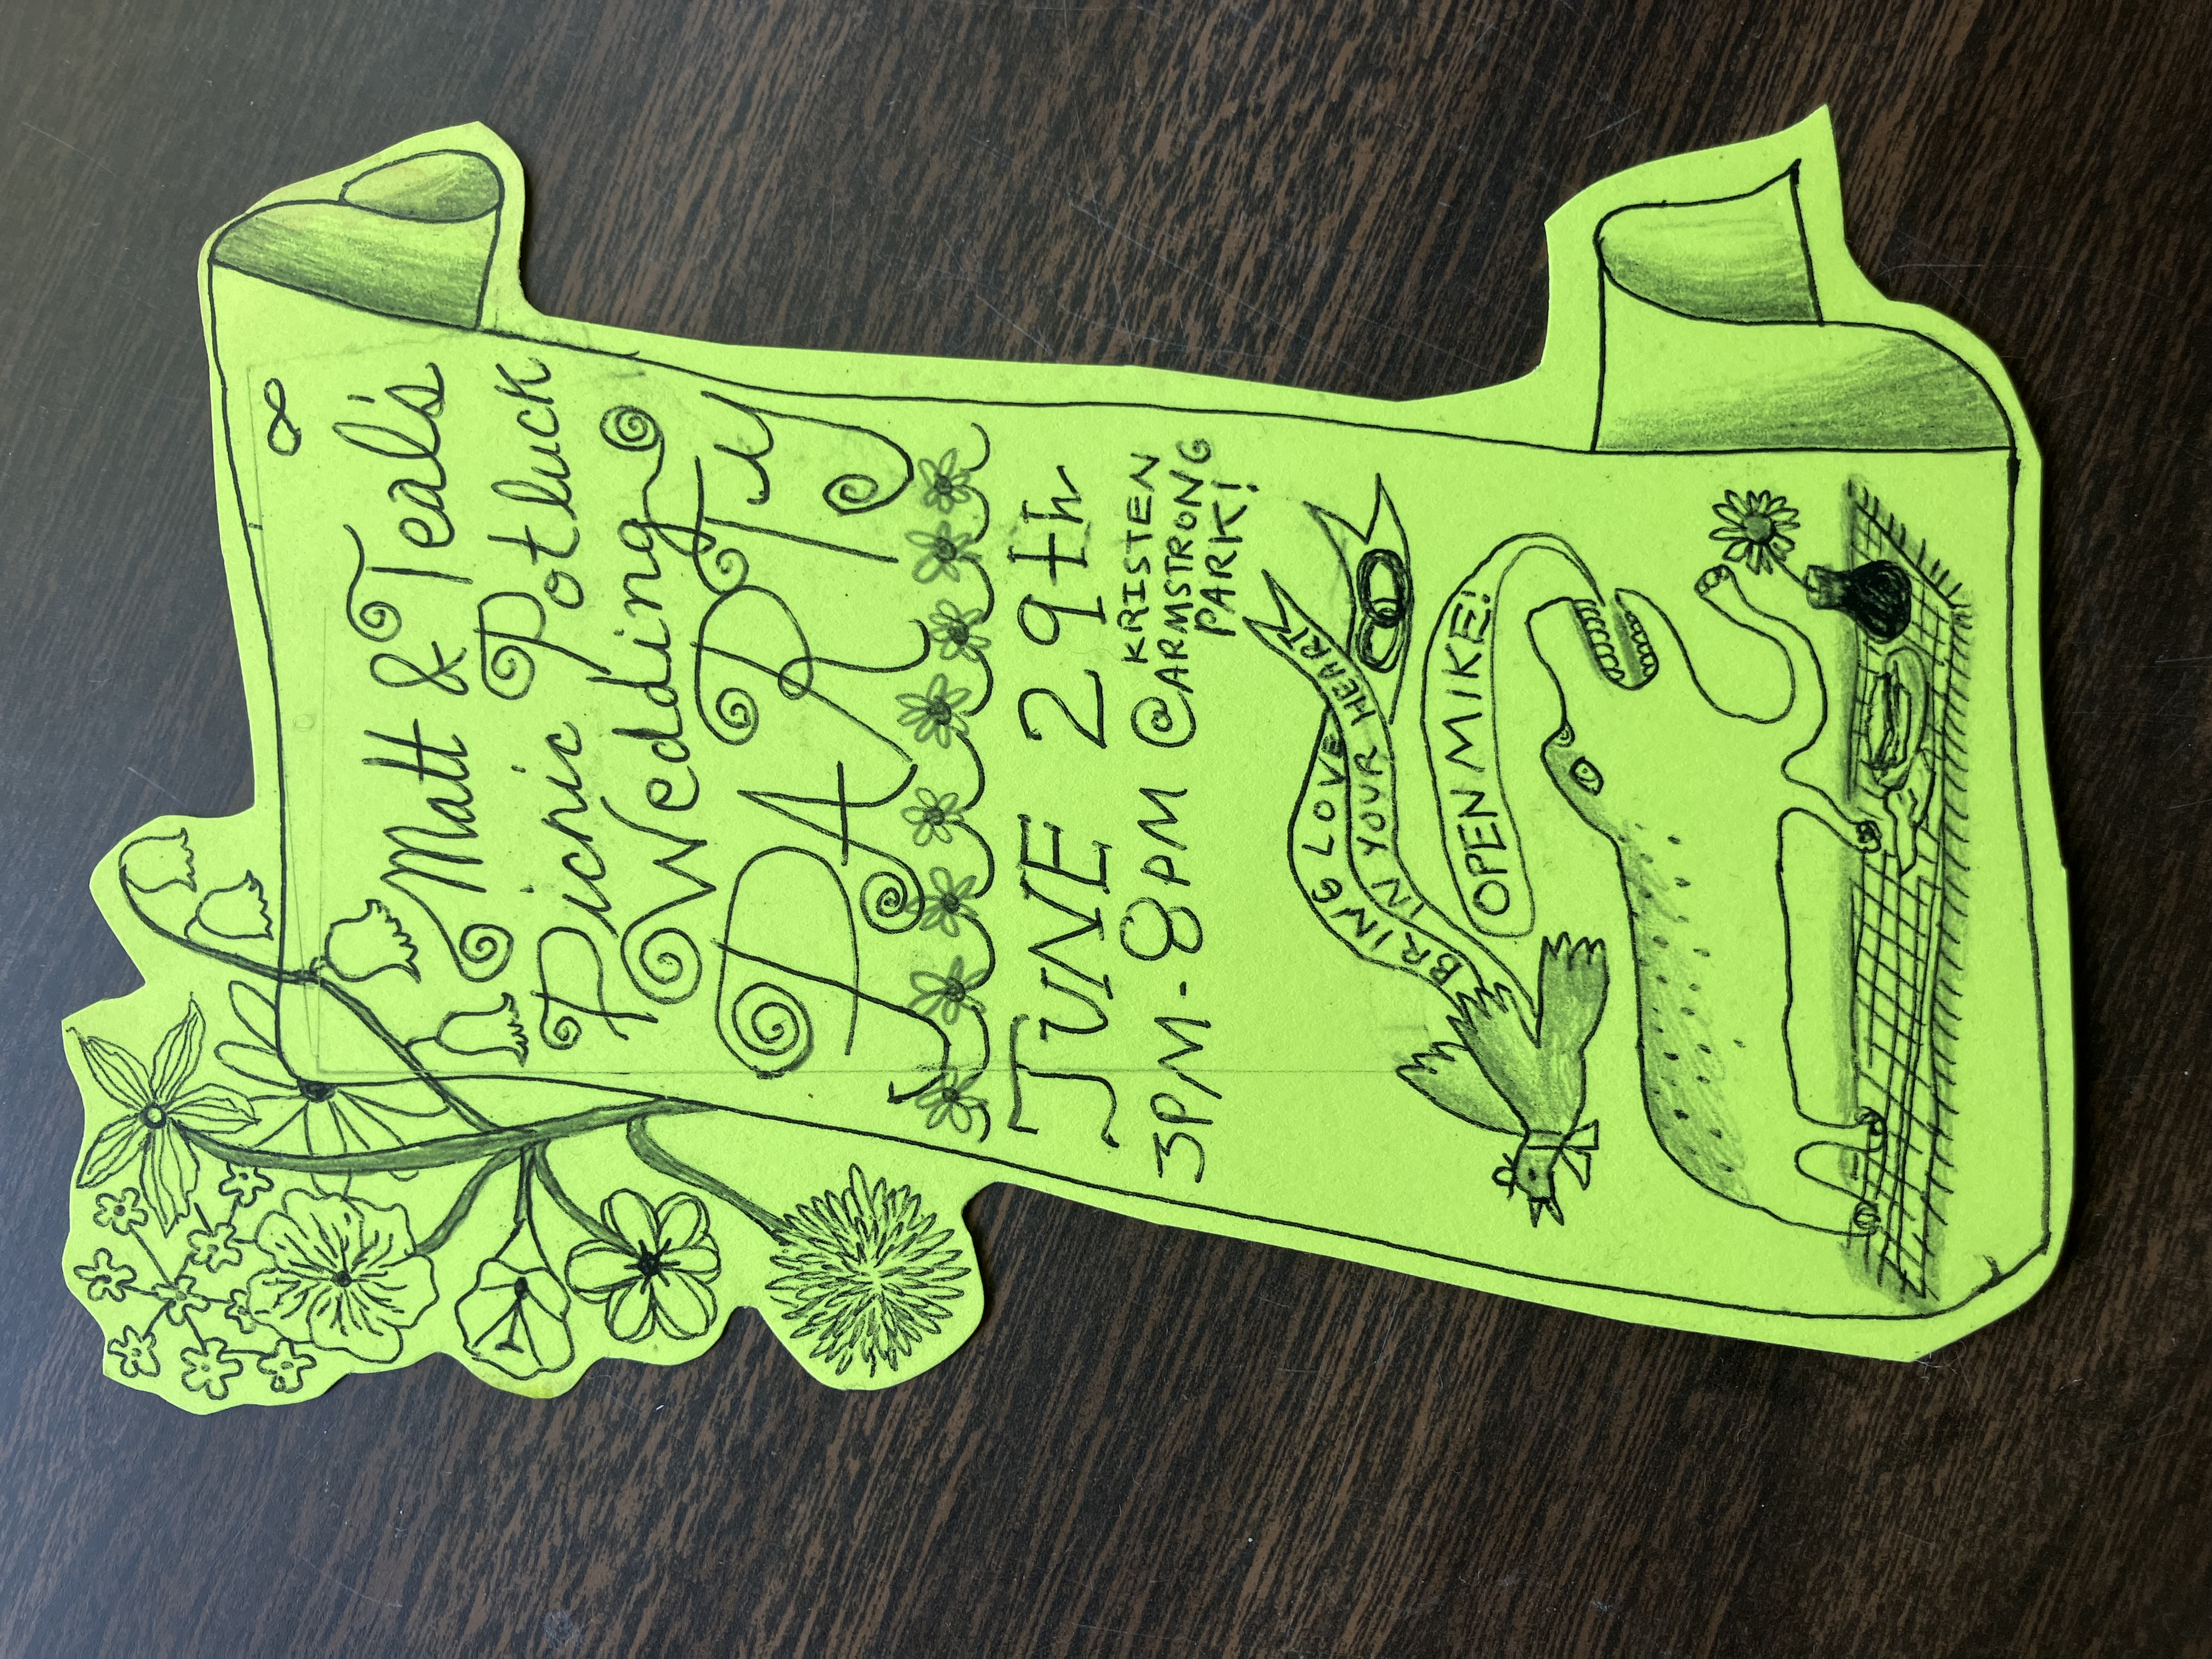 ∞
Matt & Teal's
Picnic Potluck
Wedding
PARTY
JUNE 29th
3PM-8PM @ KRISTEN
ARMSTRONG
PARK!
BRING LOVE
IN YOUR HEART
OPEN MIKE!